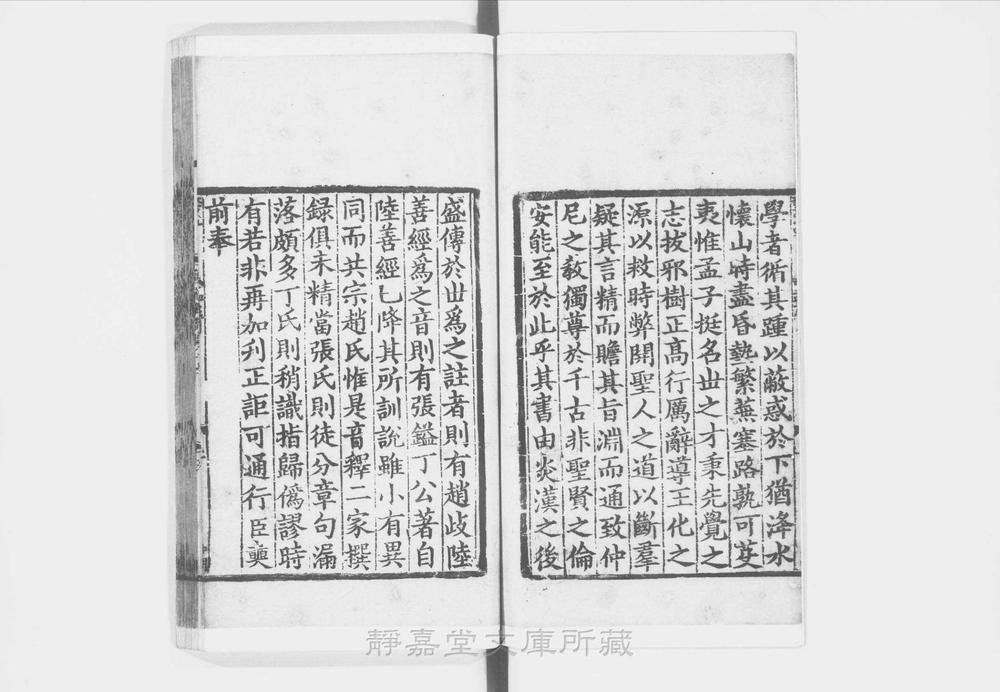 學者循其踵以蔽惑於下猶洚水
懷山時盡昏墊繁蕪塞路孰可芟
夷惟孟子挺名世之才秉先覺之
志拔邪樹正高行厲辭導王化之
源以救時弊開聖人之道以斷羣
疑其言精而贍其旨淵而通致仲
尼之教獨尊於千古非聖賢之倫
安能至於此乎其書由炎漢之後
盛傳於世爲之註者則有趙歧陸
善經爲之音則有張鎰丁公著自
陸善經已降其所訓說雖小有異
同而共宗趙氏惟是音釋二家撰
録俱未精當張氏則徒分章句漏
落頗多丁氏則稍識指歸僞謬時
有若非再加刋正詎可通行臣奭
前奉
靜嘉堂文庫所藏